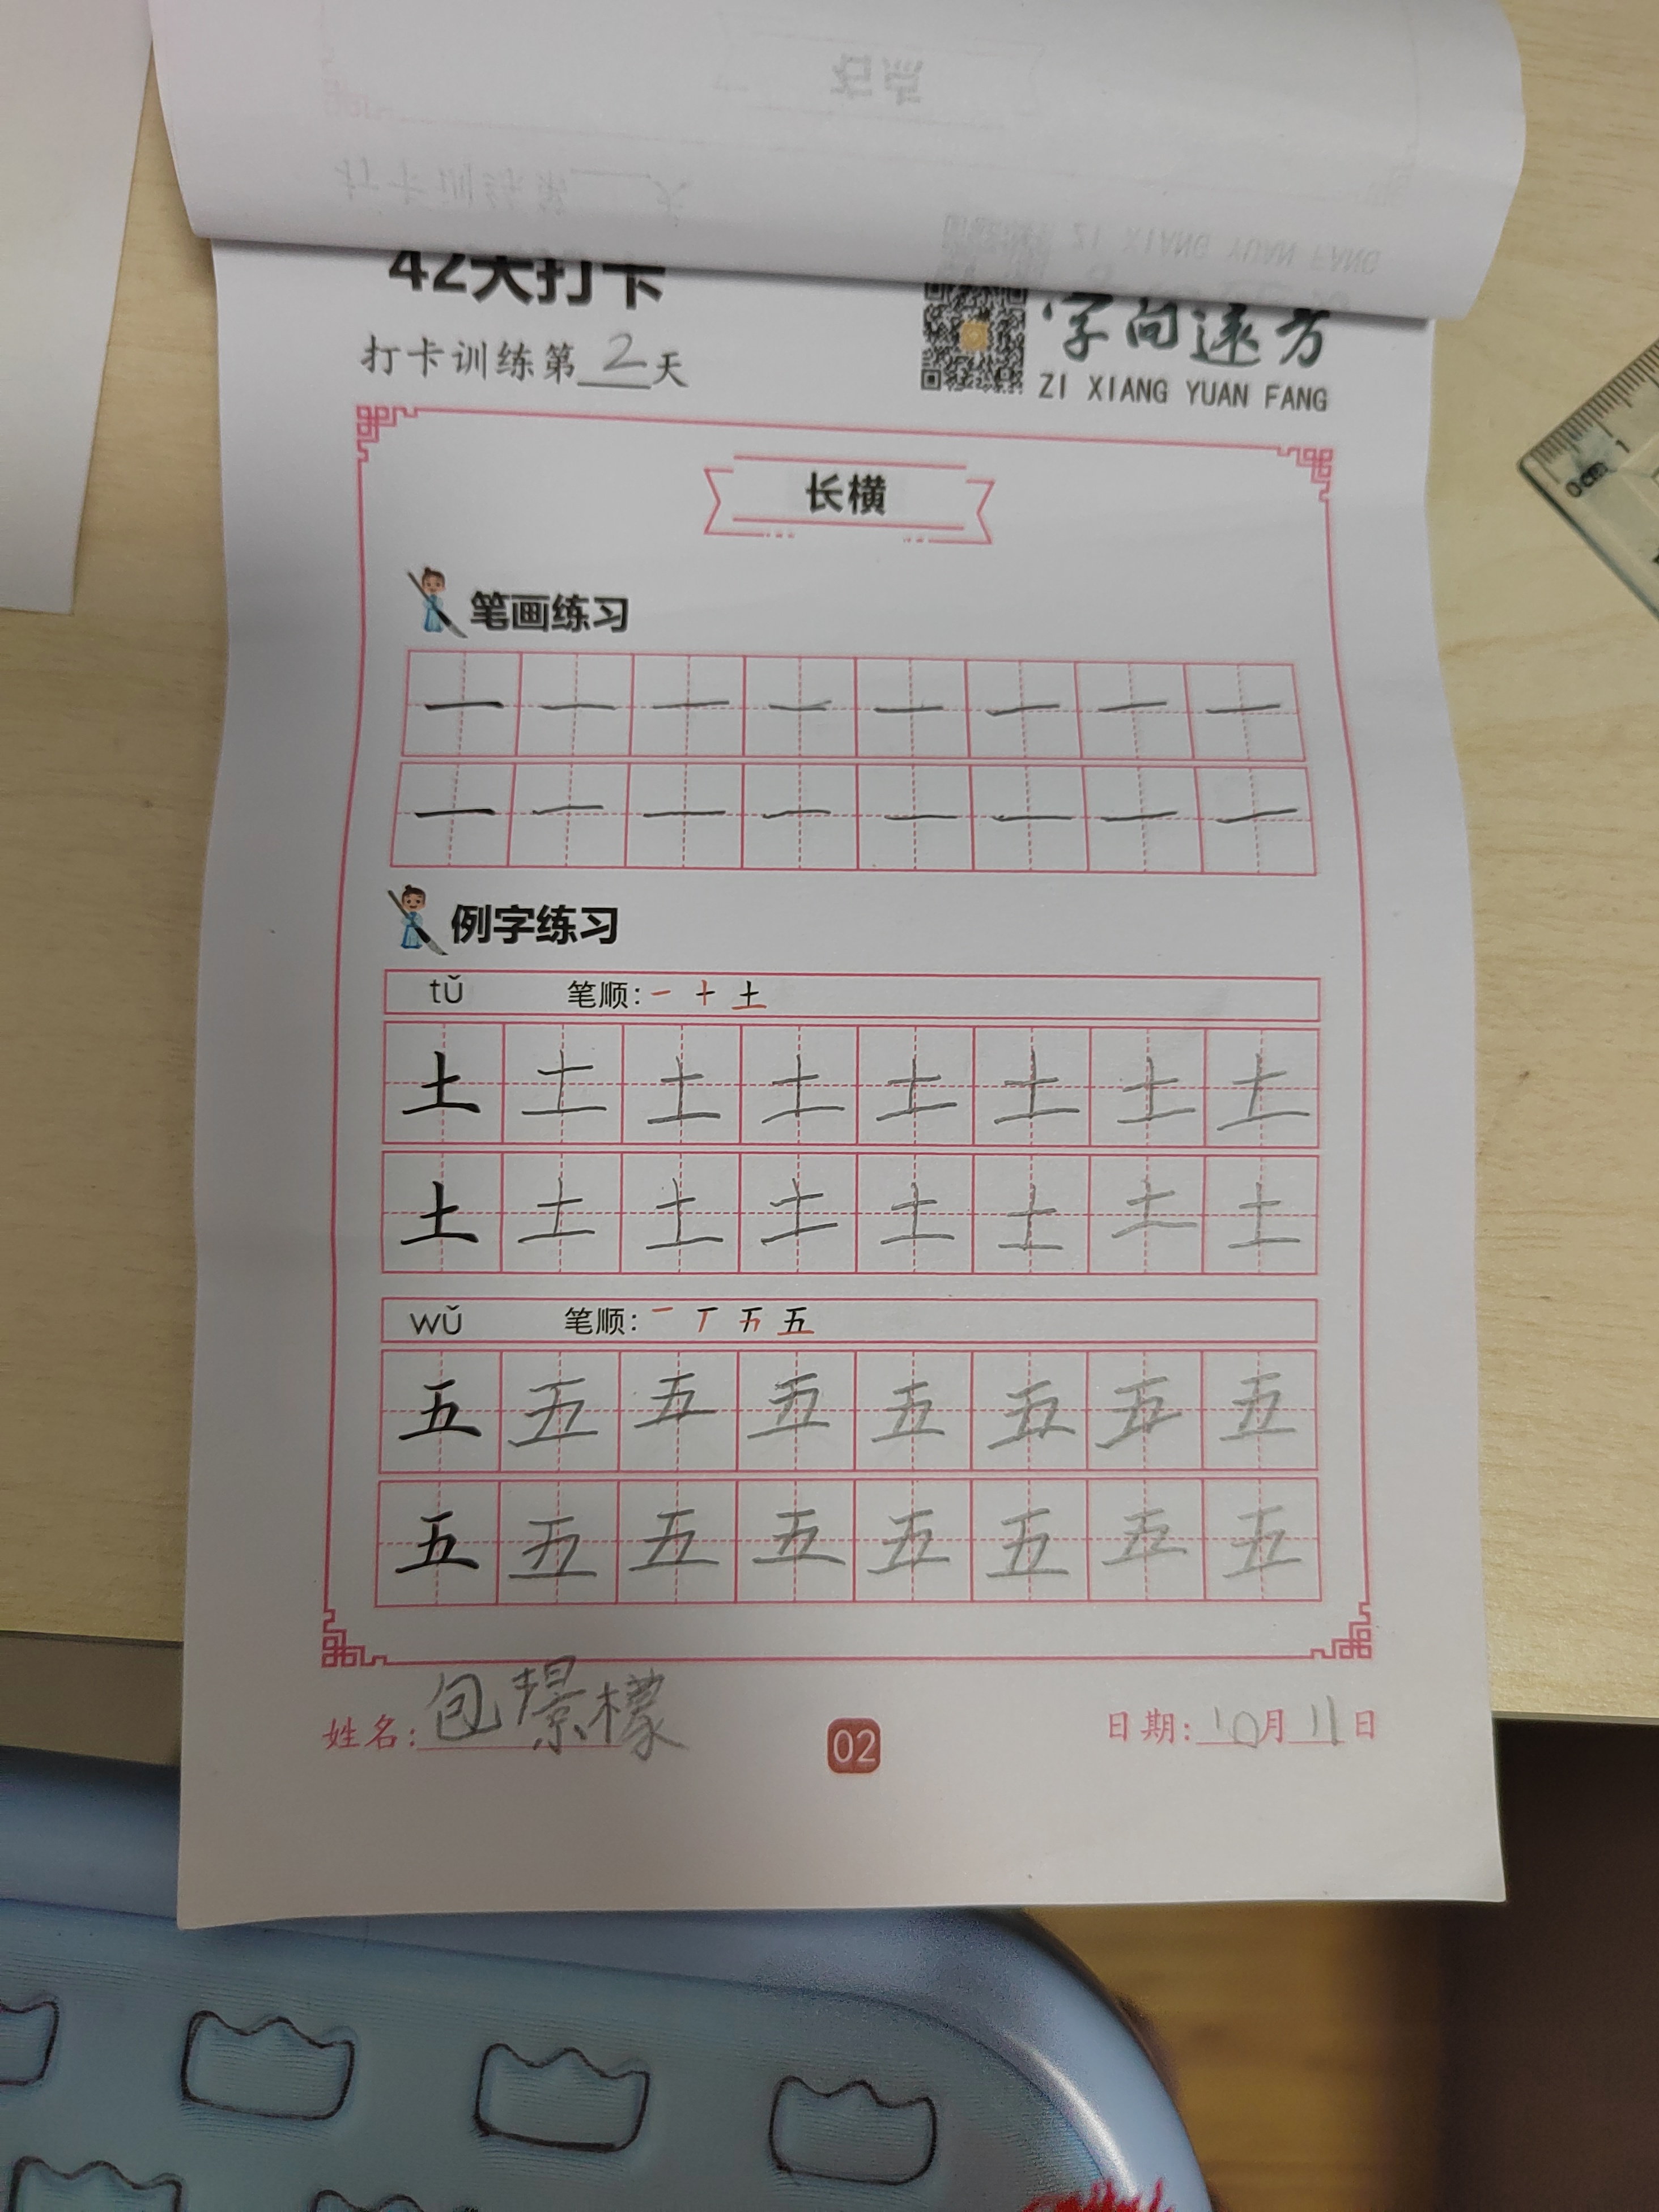 42天打卡
打卡训练第2天
字向远方
ZI XIANG YUAN FANG
长横
笔画练习
一 一 一 一 一 一 一 一
一 一 一 一 一 一 一 一
例字练习
tǔ 笔顺: 一 十 土
土 土 土 土 土 土 土 土
土 土 土 土 土 土 土 土
wǔ 笔顺: 一 丅 五
五 五 五 五 五 五 五 五
五 五 五 五 五 五 五 五
姓名: 包璟檬
02
日期: 10月11日
0cm 1